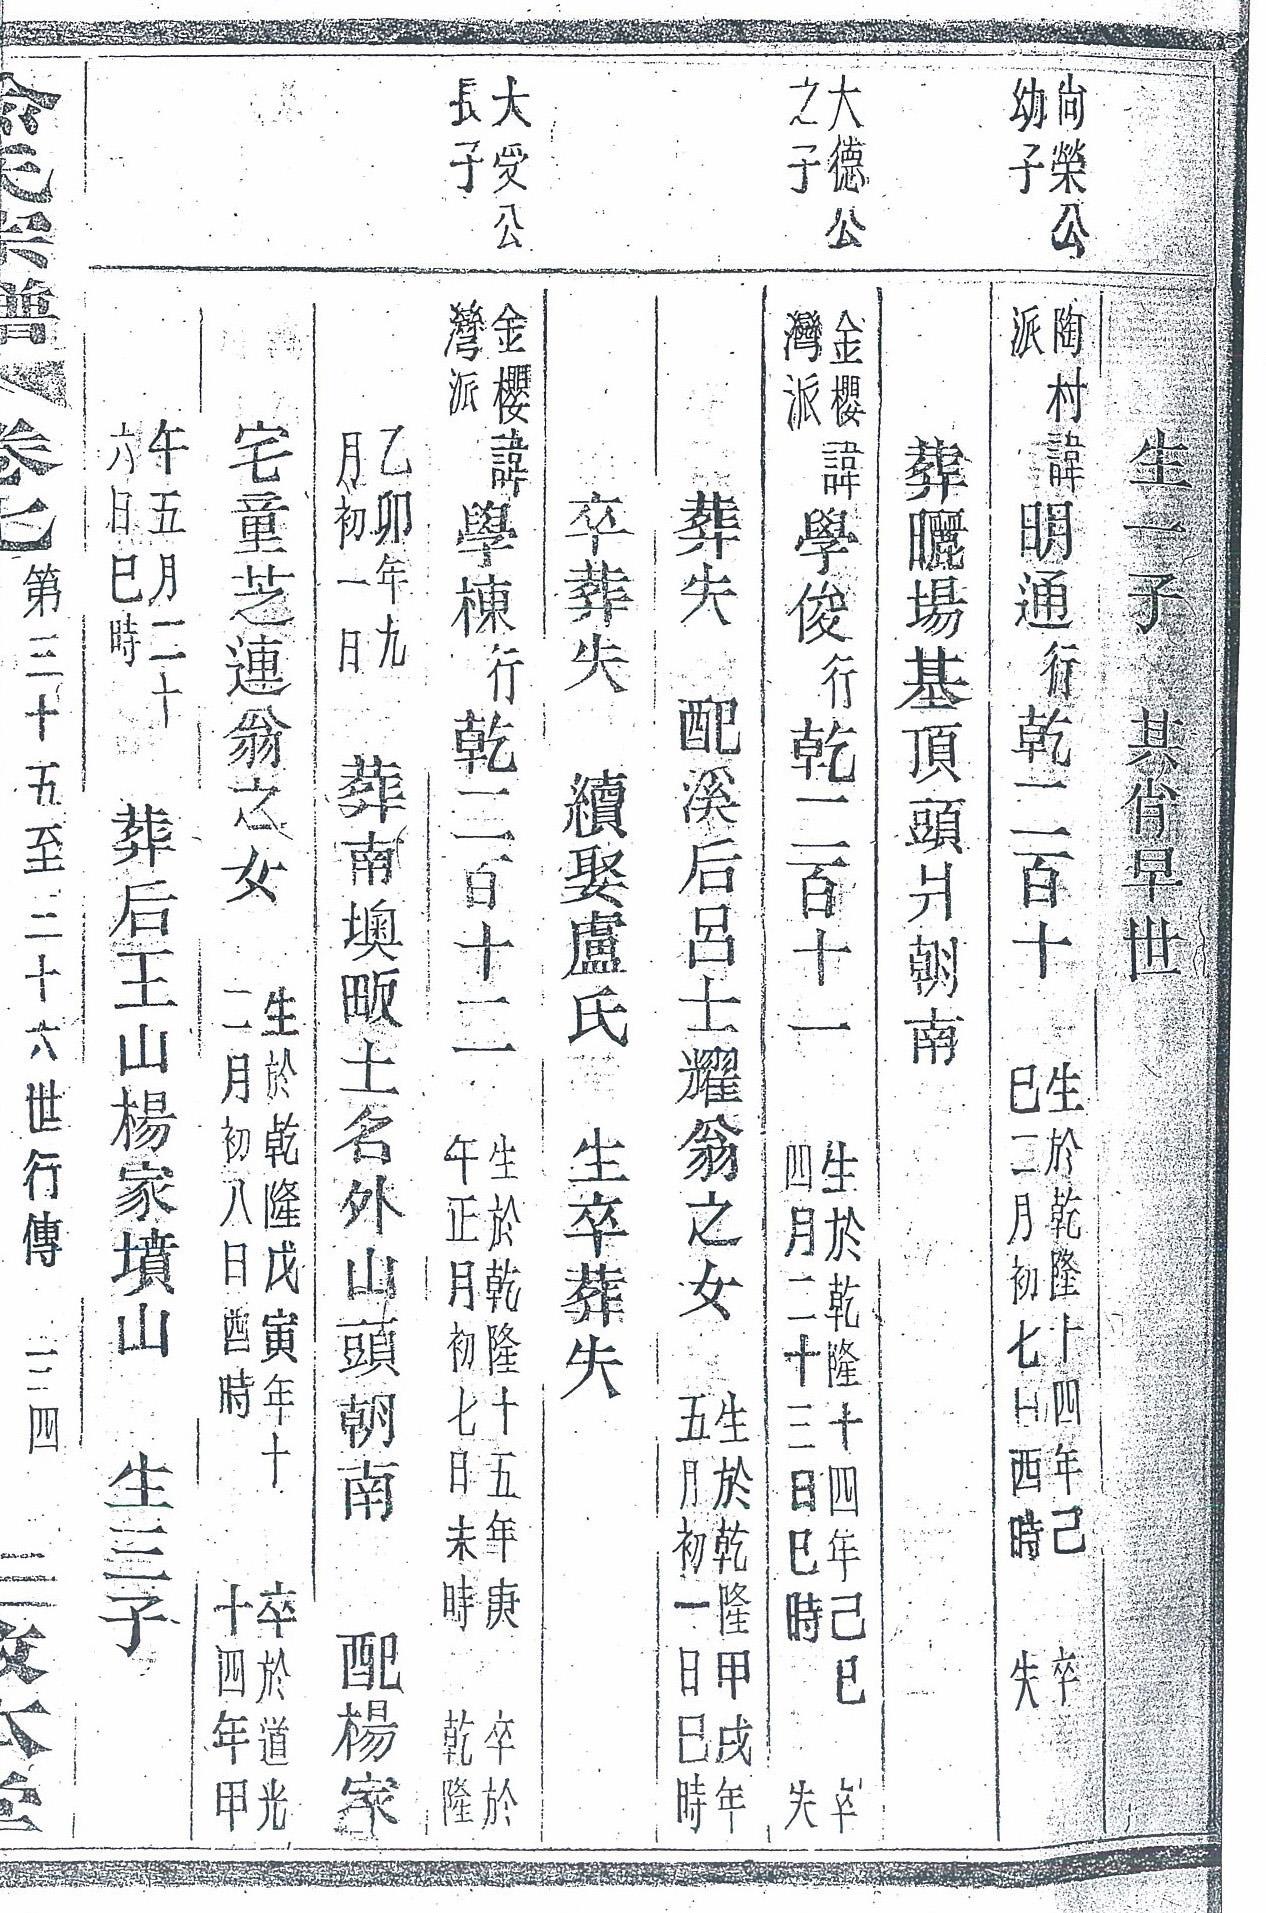 生一子 其肖早世
尚榮公
幼子
陶村
派
諱明通行乾二百十
生於乾隆十四年己
巳二月初七日酉時
卒
失
葬曬場基頂頭爿朝南
大德公
之子
金櫻
灣派
諱學俊行乾二百十一
生於乾隆十四年己巳
四月二十三日巳時
卒
失
葬失 配溪后呂士耀翁之女
生於乾隆甲戌年
五月初一日巳時
卒葬失 續娶盧氏 生卒葬失
大受公
長子
金櫻
灣派
諱學棟行乾二百十二
生於乾隆十五年庚
午正月初七日未時
卒於
乾隆
乙卯年九
月初一日
葬南墺畈土名外山頭朝南 配楊家
宅童芝連翁之女
生於乾隆戊寅年十
二月初八日酉時
卒於道光
十四年甲
午五月二十
六日巳時
葬后王山楊家墳山 生三子
氏宗譜 卷七 第三十五至三十六世行傳 三四 敦本堂